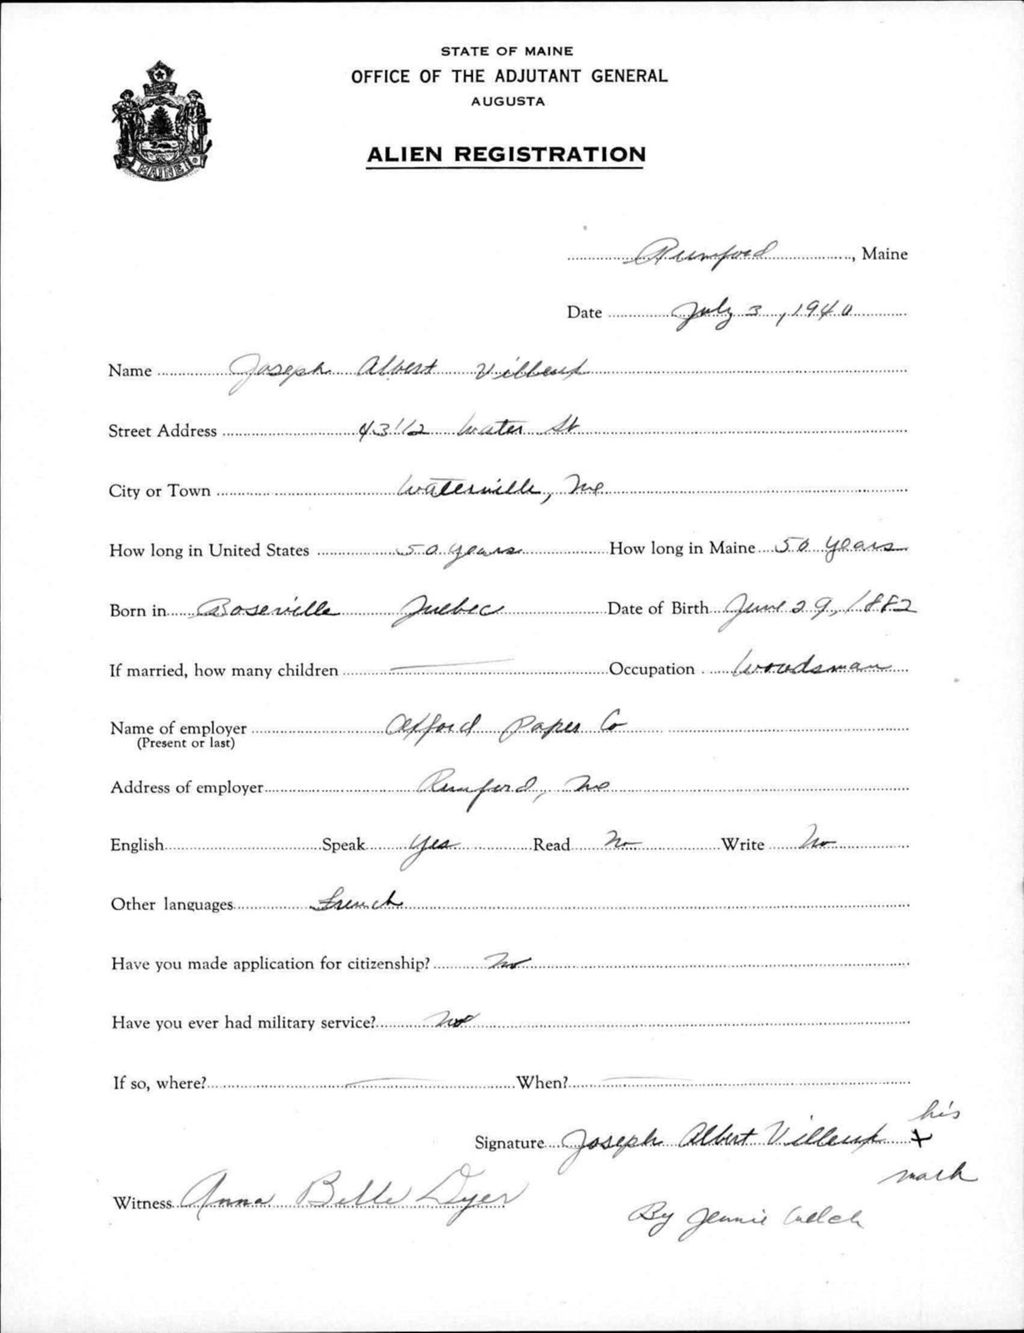 STATE OF MAINE
OFFICE OF THE ADJUTANT GENERAL
AUGUSTA
ALIEN REGISTRATION
MAINE
Rumford, Maine
Date July 3, 1940
Name Joseph Albert Villeux
Street Address 43 1/2 Water St
City or Town Waterville, Me
How long in United States 50 years How long in Maine 50 years
Born in Boseville Quebec Date of Birth June 29, 1882
If married, how many children — Occupation Woodsman
Name of employer Oxford Paper Co
(Present or last)
Address of employer Rumford, Me
English Speak Yes Read No Write No
Other languages French
Have you made application for citizenship? No
Have you ever had military service? No
If so, where? — When? —
his
Signature Joseph Albert Villeux X
mark
Witness Anna Belle Dyer
By Jennie Welch